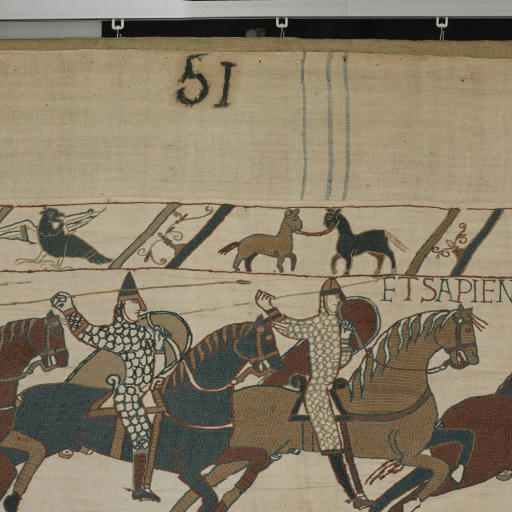 51
ET SAPIEN